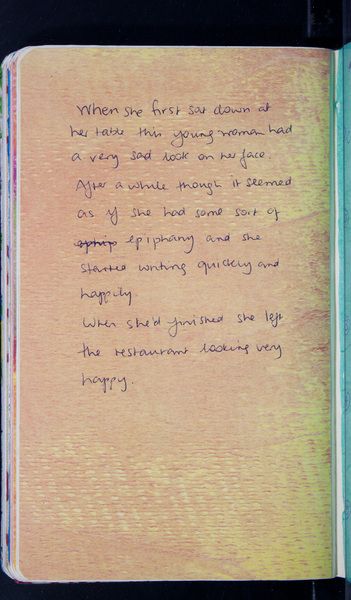 When she first sat down at
her table this young woman had
a very sad look on her face.
After a while though it seemed
as if she had some sort of
epiphany and she
started writing quickly and
happily.
When she'd finished she left
the restaurant looking very
happy.